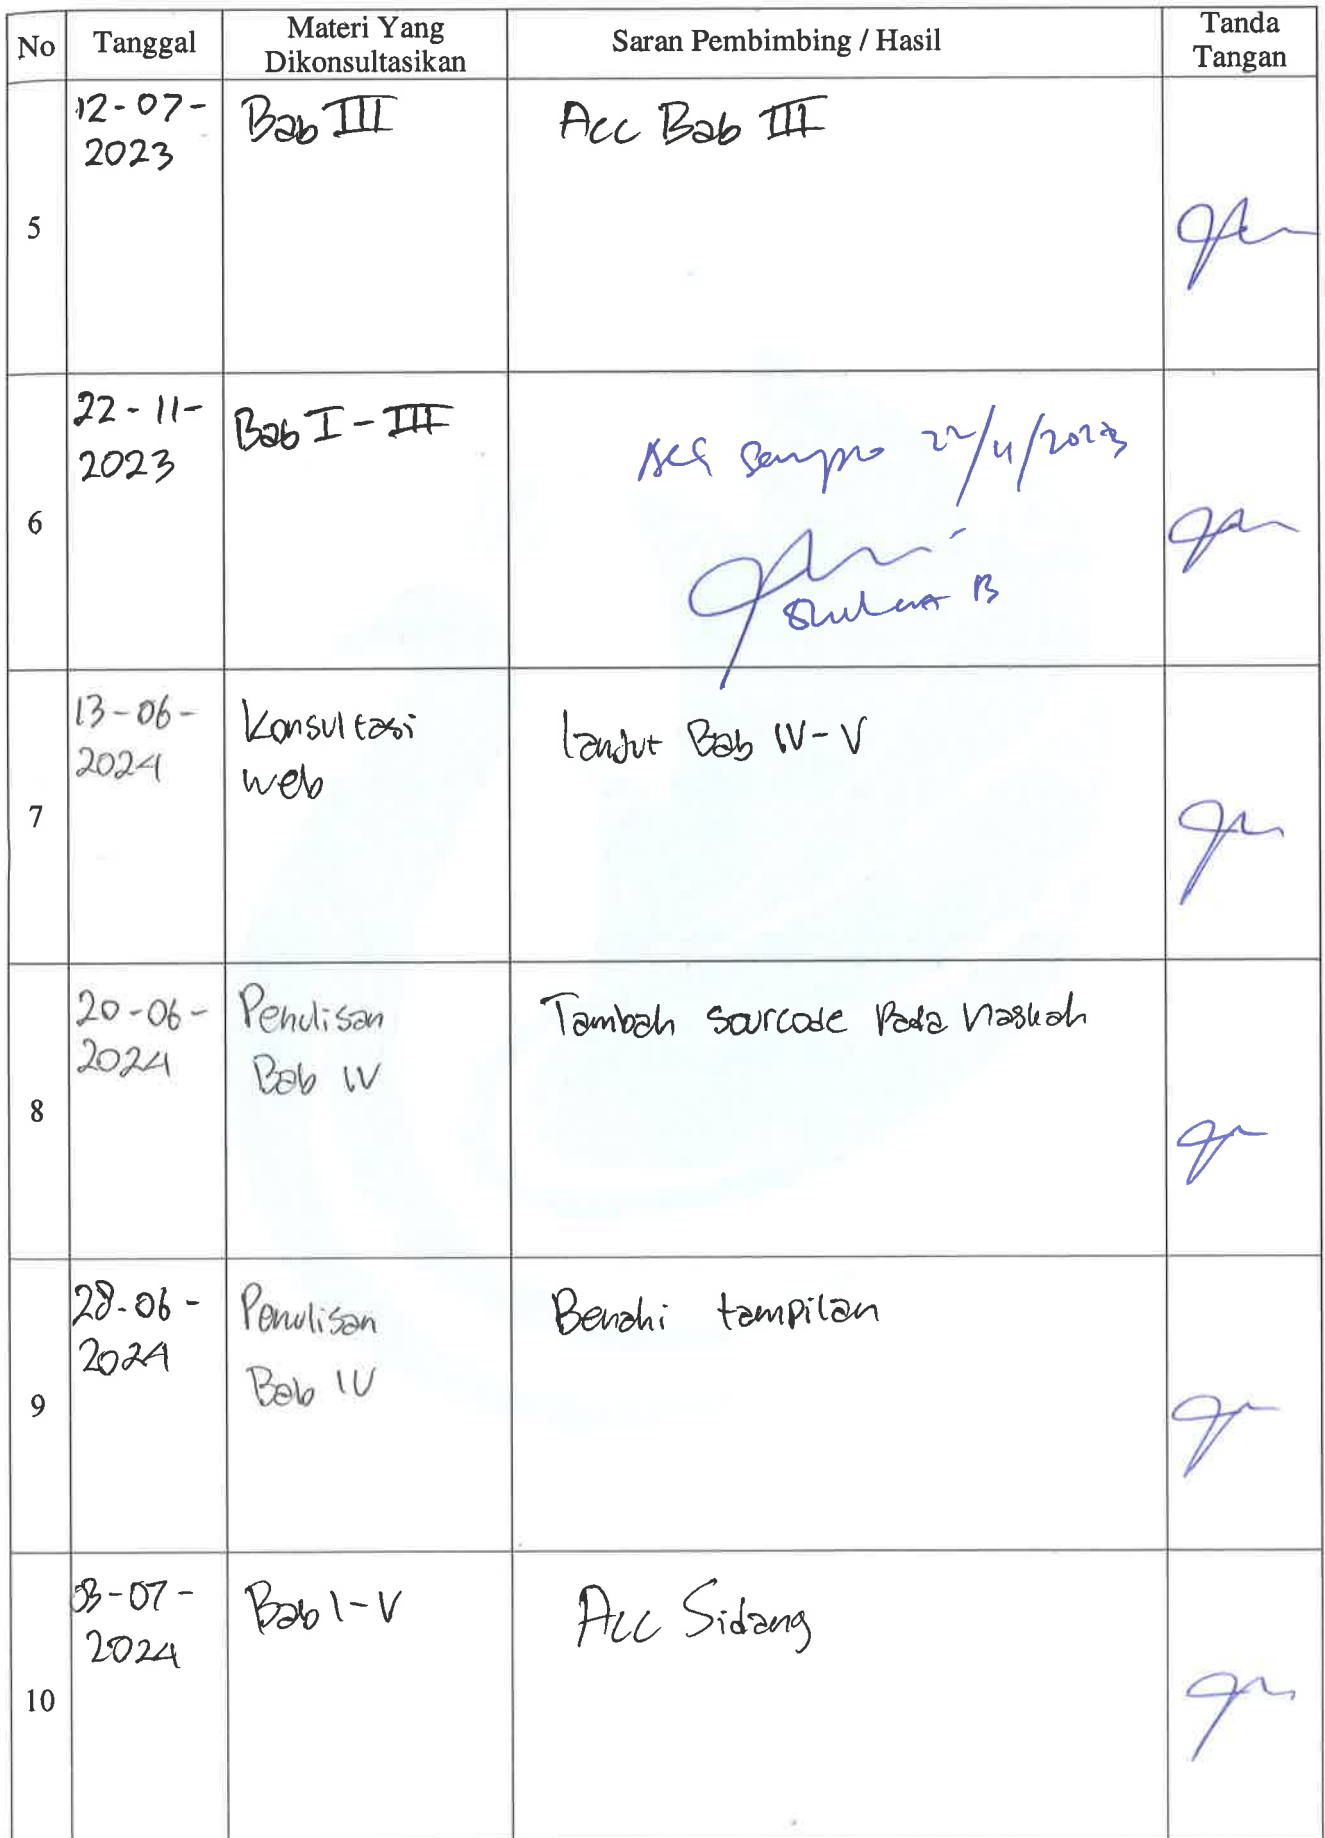 No Tanggal Materi Yang Dikonsultasikan Saran Pembimbing / Hasil Tanda Tangan
5 12-07-2023 Bab III Acc Bab III
6 22-11-2023 Bab I - III Acc Sempro 22/11/2023
7 13-06-2024 Konsultasi web lanjut Bab IV-V
8 20-06-2024 Penulisan Bab IV Tambah sourcode Pada Naskah
9 28-06-2024 Penulisan Bab IV Benahi tampilan
10 03-07-2024 Bab I-V Acc Sidang